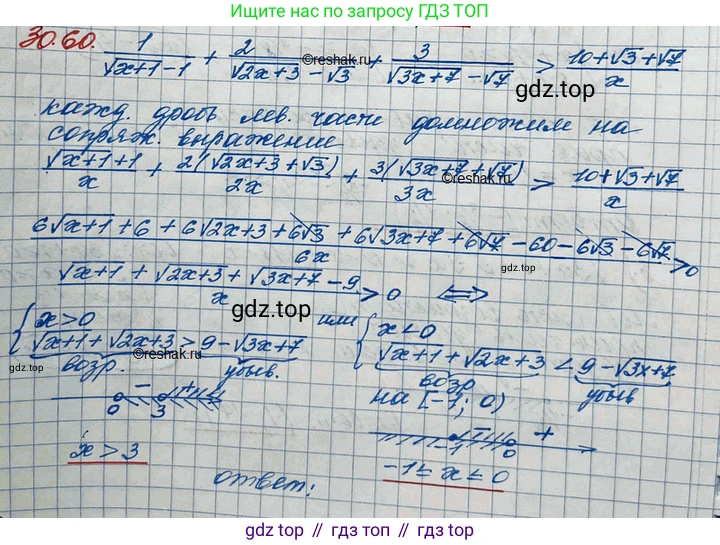 Ищите нас по запросу ГДЗ ТОП
30.60. 1/(√x+1 - 1) + 2/(√2x+3 - √3) + 3/(√3x+7 - √7) > (10+√3+√7)/x
©reshak.ru ©reshak.ru
gdz.top
кажд. дробь лев. части домножим на
сопряж. выражение
(√x+1 + 1)/x + 2(√2x+3 + √3)/2x + 3(√3x+7 + √7)/3x > (10+√3+√7)/x
©reshak.ru
(6√x+1 + 6 + 6√2x+3 + 6√3 + 6√3x+7 + 6√7 - 60 - 6√3 - 6√7)/6x > 0
(√x+1 + √2x+3 + √3x+7 - 9)/x > 0 <=>
gdz.top
{ x>0 или { x<0
√x+1 + √2x+3 > 9 - √3x+7 √x+1 + √2x+3 < 9 - √3x+7
gdz.top ©reshak.ru gdz.top
возр. убыв. возр убыв
на [-1; 0)
- +
0 3
- +
-1 0
x > 3
-1 ≤ x ≤ 0
ответ:
gdz.top // гдз топ // gdz.top // гдз топ